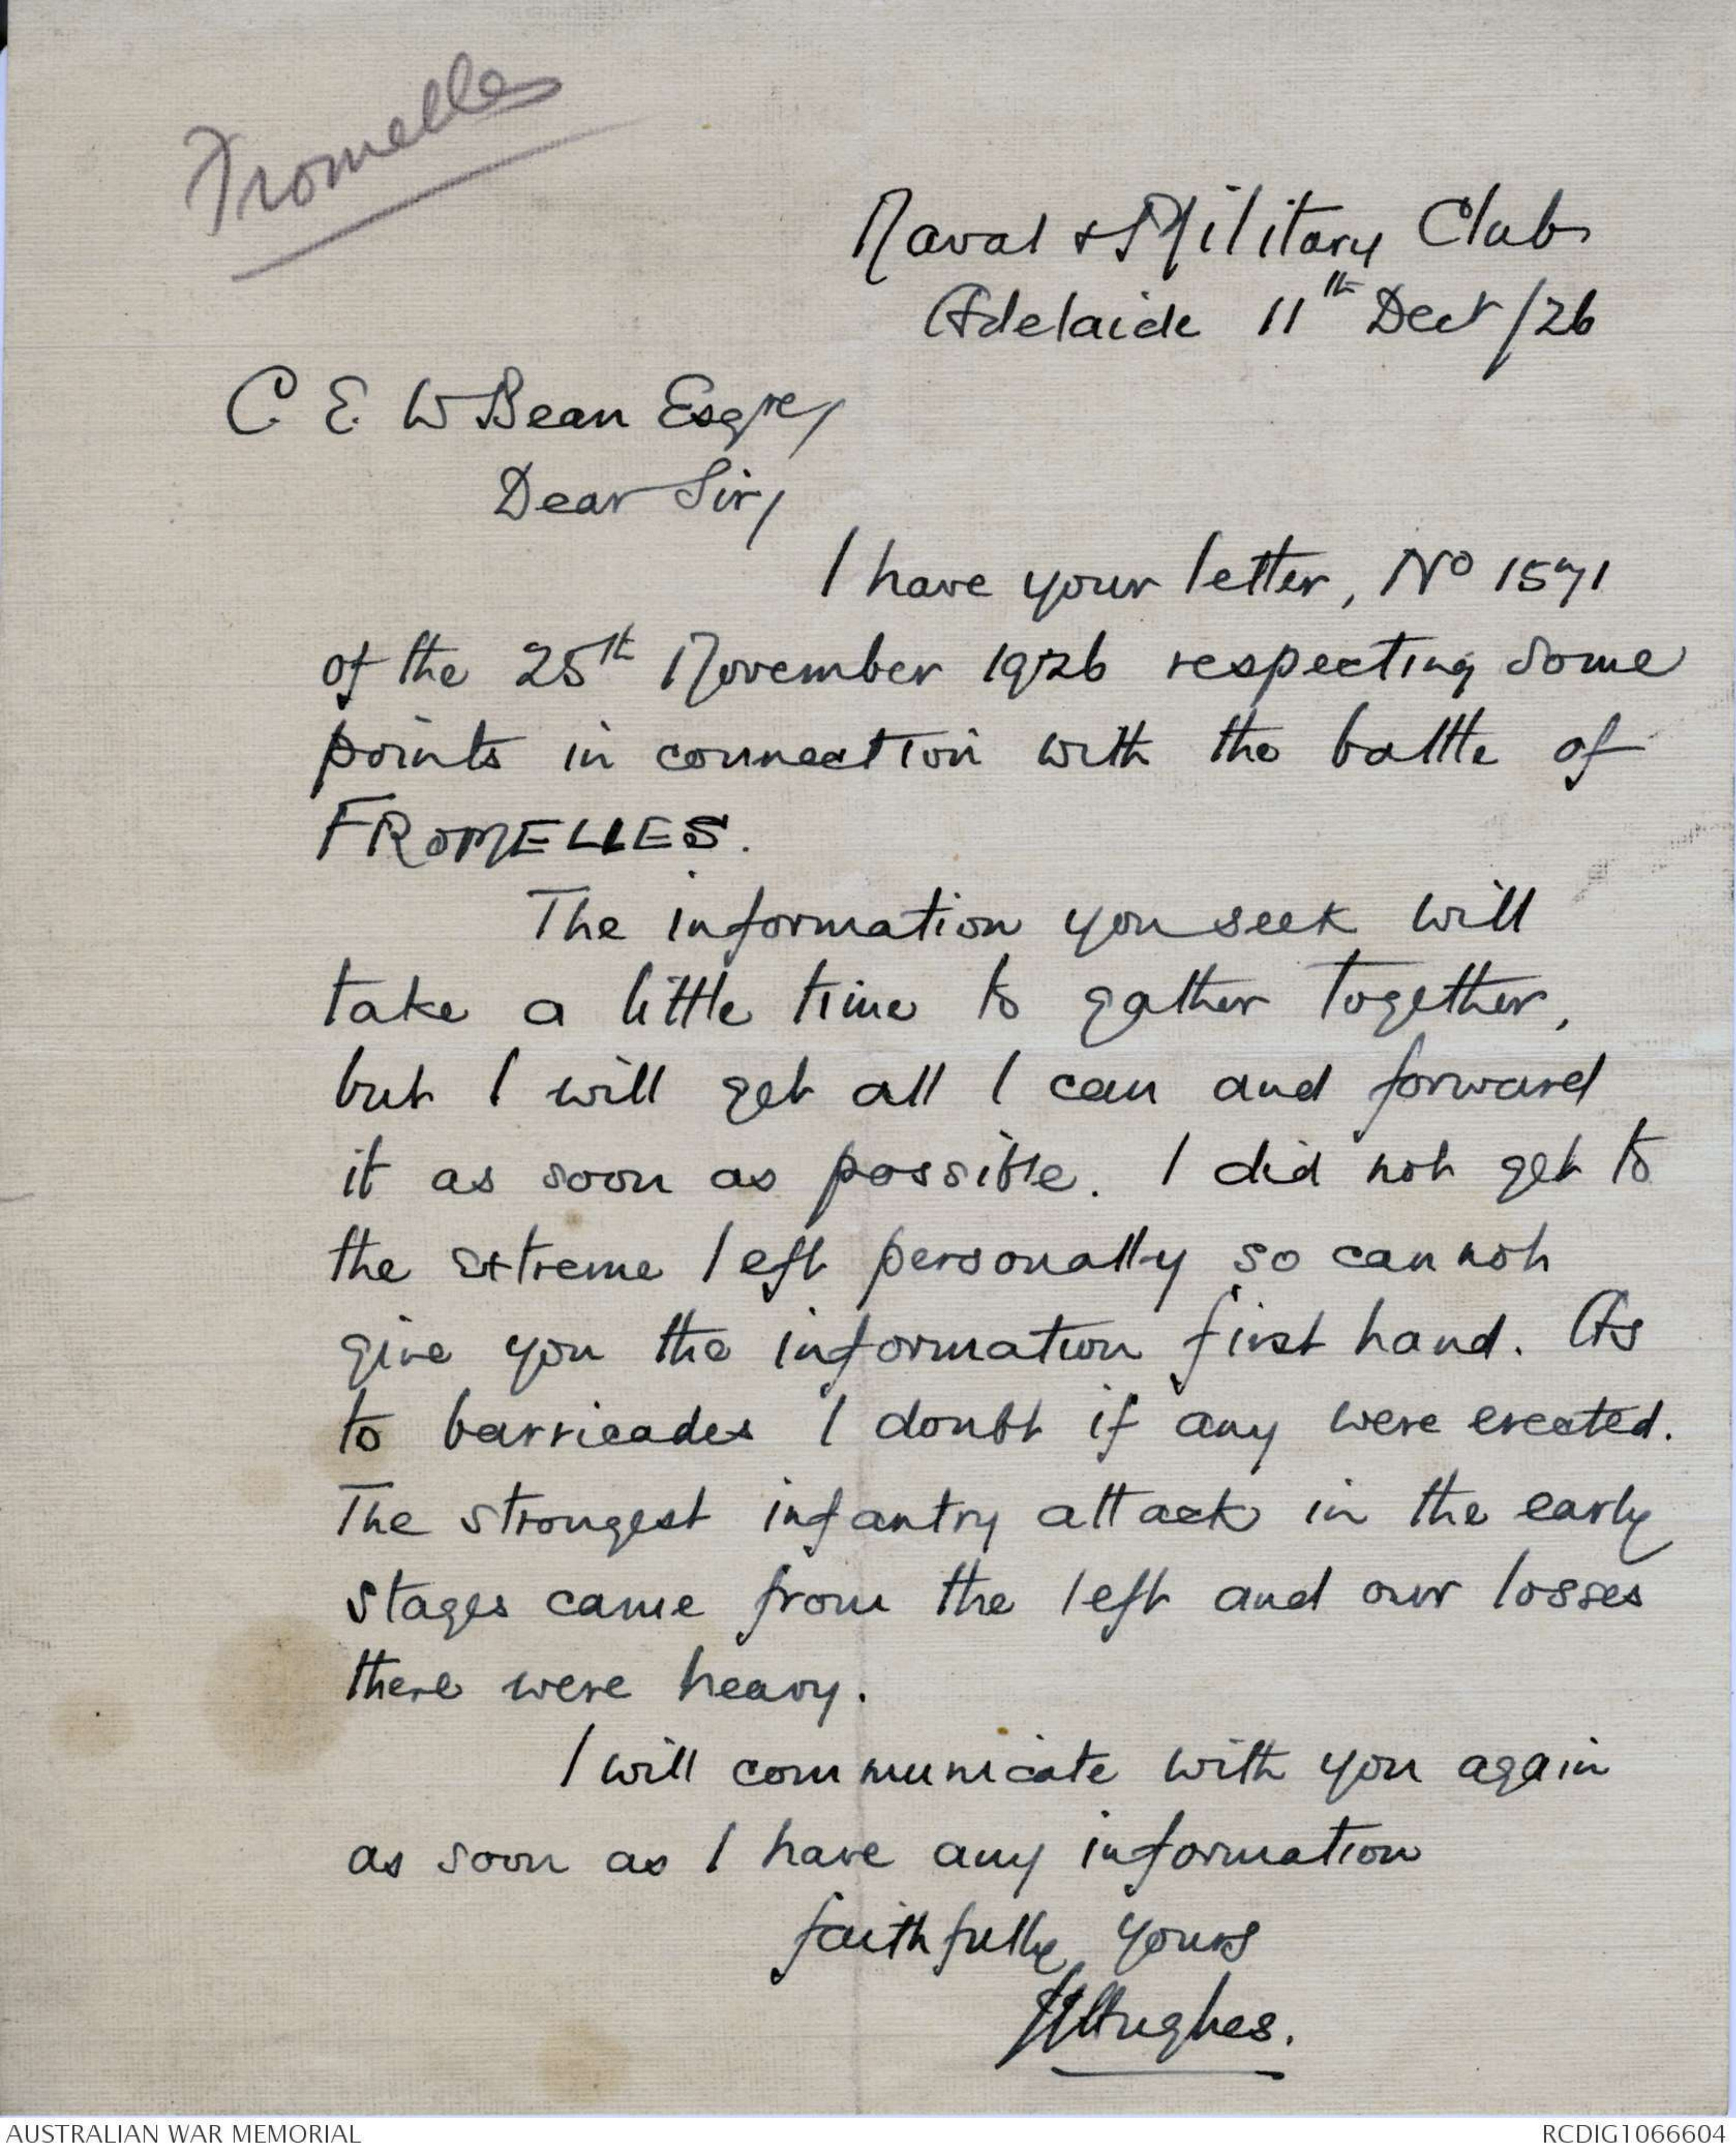 Fromelles
Naval & Military Club
Adelaide 11th Decr /26
C. E. W Bean Esqre,
Dear Sir,
I have your letter, No 1571
of the 25th November 1926 respecting some
points in connection with the battle of
FROMELLES.
The information you seek will
take a little time to gather together,
but I will get all I can and forward
it as soon as possible. I did not get to
the extreme left personally so cannot
give you the information first hand. As
to barricades I doubt if any were erected.
The strongest infantry attack in the early
stages came from the left and our losses
there were heavy.
I will communicate with you again
as soon as I have any information
faithfully yours
Hughes.
AUSTRALIAN WAR MEMORIAL
RCDIG1066604